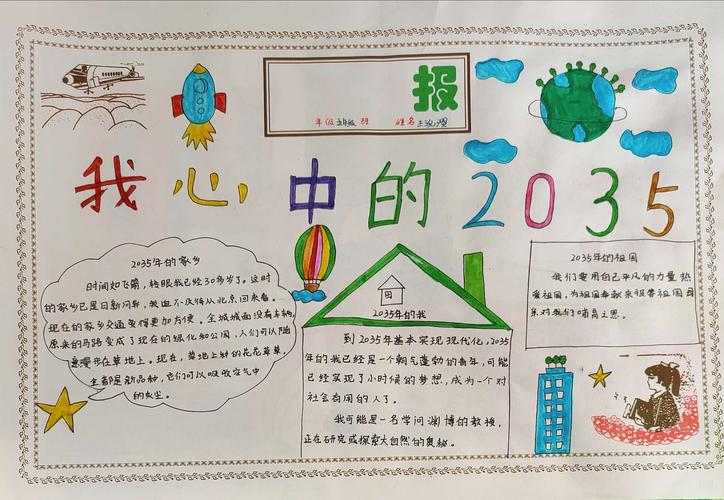 报
年级 五年级 班 姓名
我心中的2035
2035年的家乡
时间如飞箭,转眼我已经30多岁了。这时
的家乡已是日新月异,我迫不及待从北京回来看。
现在的家乡交通变得更加方便。全城城面没有车辆,
原来的马路变成了现在的绿化和公园,人们可以随
意漫步在草地上。现在,草地上种的花花草草,
全都是新品种,它们可以吸收空气中
的灰尘。
2035年的我
到2035年基本实现现代化,2035
年的我已经是一个朝气蓬勃的青年,可能
已经实现了小时候的梦想,成为一个对
社会有用的人了。
我可能是一名学问渊博的教授,
正在研究或探索大自然的奥秘。
2035年的祖国
我们要用自己平凡的力量热
爱祖国,为祖国奉献来报答祖国母
亲对我们哺育之恩。